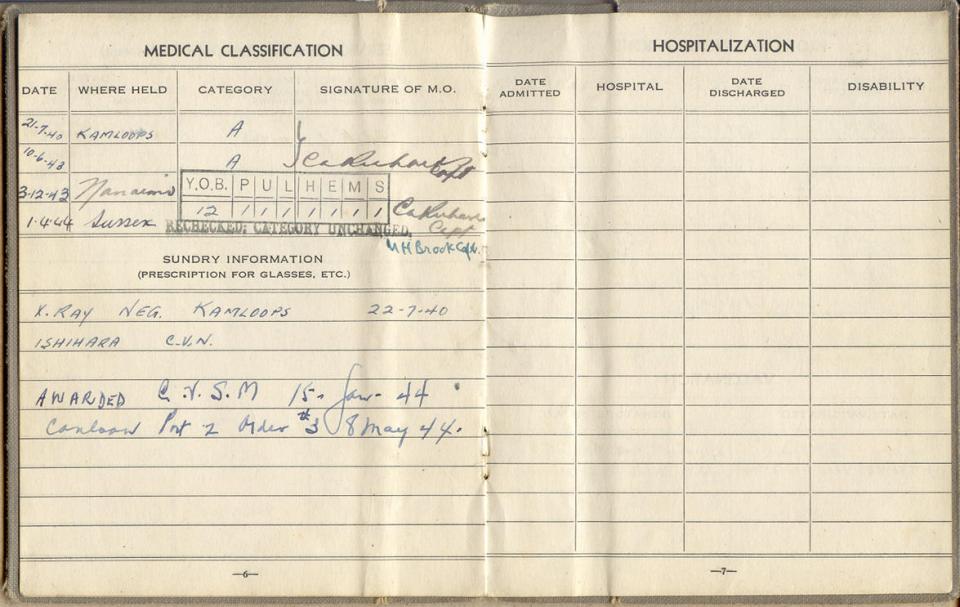 MEDICAL CLASSIFICATION
DATE WHERE HELD CATEGORY SIGNATURE OF M.O.
21-7-40 KAMLOOPS A
10-6-43 A Capt
3-12-43 Nanaimo Y.O.B. P U L H E M S
12 1 1 1 1 1 1 1
1-4-44 Sussex RECHECKED; CATEGORY UNCHANGED. Capt
MH Brook Capt.
SUNDRY INFORMATION
(PRESCRIPTION FOR GLASSES, ETC.)
X.RAY NEG. KAMLOOPS 22-7-40
ISHIHARA C.V.N.
AWARDED C.V.S.M 15- Jan- 44
Canloan Part 2 Order #3 8 May 44.
—6—
HOSPITALIZATION
DATE ADMITTED HOSPITAL DATE DISCHARGED DISABILITY
—7—